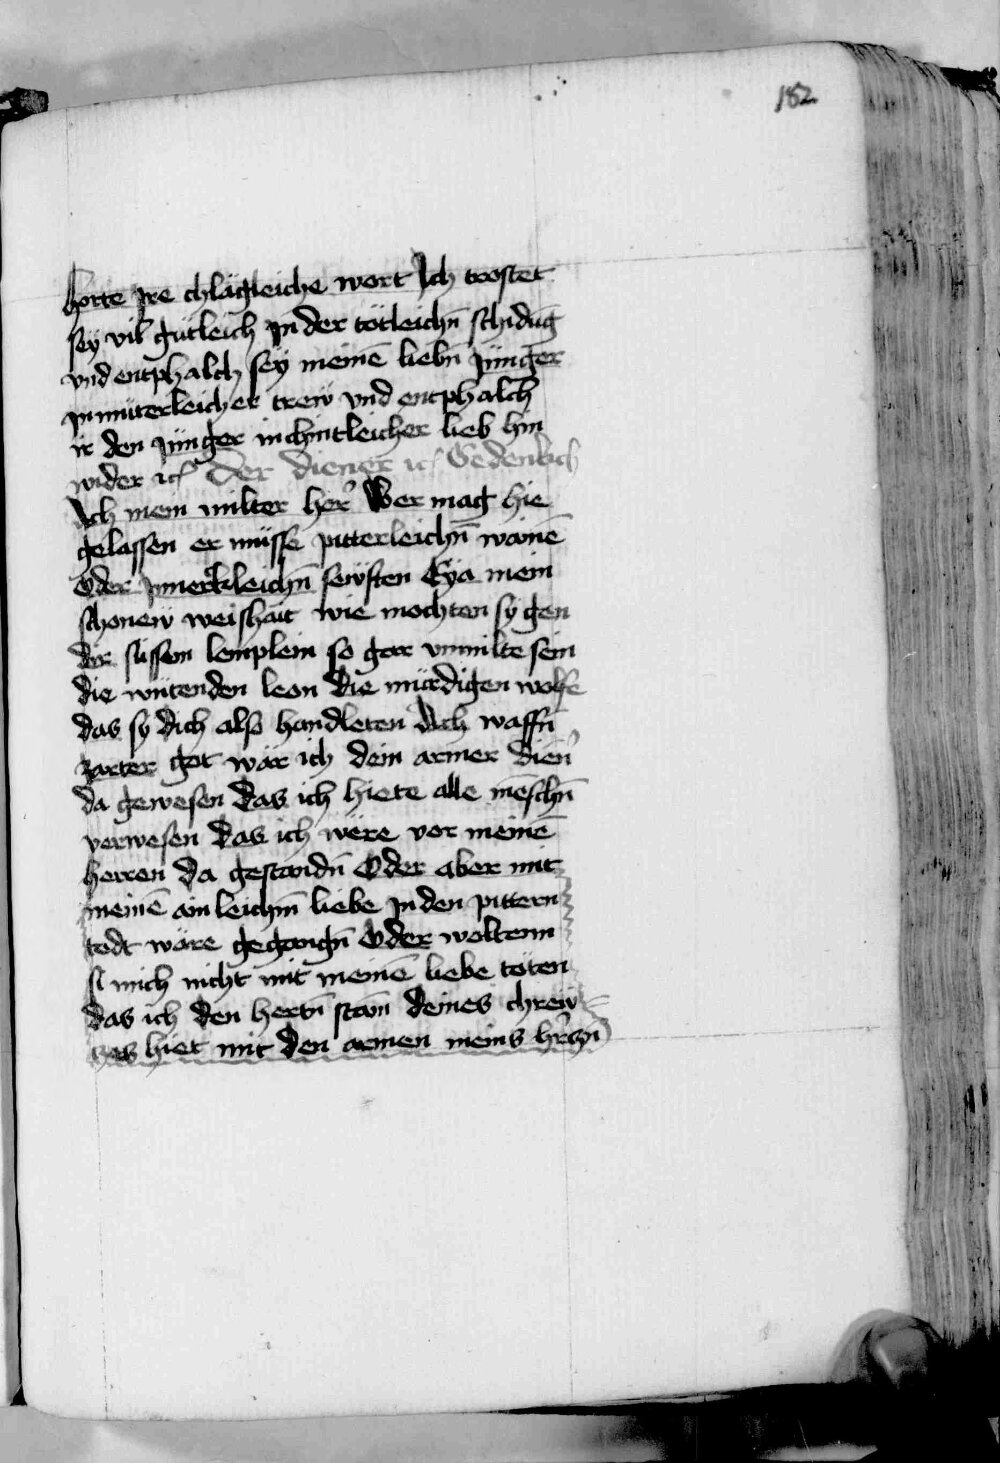 182
horte jre chlägleiche wort Ich trostet
sey vil gütleich jn der tötleichn̄ schidūg
vnd entphalch sey meinē liebn̄ jünger
jn müterleicher trew vnd entphalch
ir den jünger in chintleicher lieb hin
wider ich Der diener ich Gedenkch
Ach mein milter her Wer mag hie
gelassen er müsse pitterleichn̄ wainē
Oder jnnerkleichn̄ sewften Eya mein
schonew weishait wie mochten sy gen
dir süssem lemplein so gar vnmilte sein
die wütenden leon die mürdigen wolfe
das sy dich also handleten Ach waffn̄
zarter got wär ich dein armer dien̄
da gewesen das ich hiete alle mēschn̄
verwesen das ich wëre vor meinē
herren da gestandn̄ Oder aber mit
meinē ainleichm̄ liebe jn den pittern
todt wäre gegangn̄ Oder woltenn
si mich nicht mit meinē liebe töten
das ich den hertn̄ stain deines chrew
zes hiet mit den armen meins hr̄czn̄